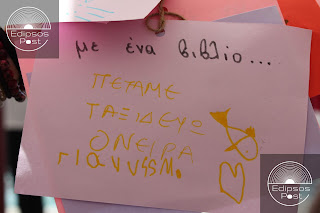 Edipsos
Post
με ένα βιβλίο...
ΠΕΤΑΜΕ
ΤΑΞΙΔΕΥΩ
ΟΝΕΙΡΑ
Γιαννης Μ.
Edipsos
Post